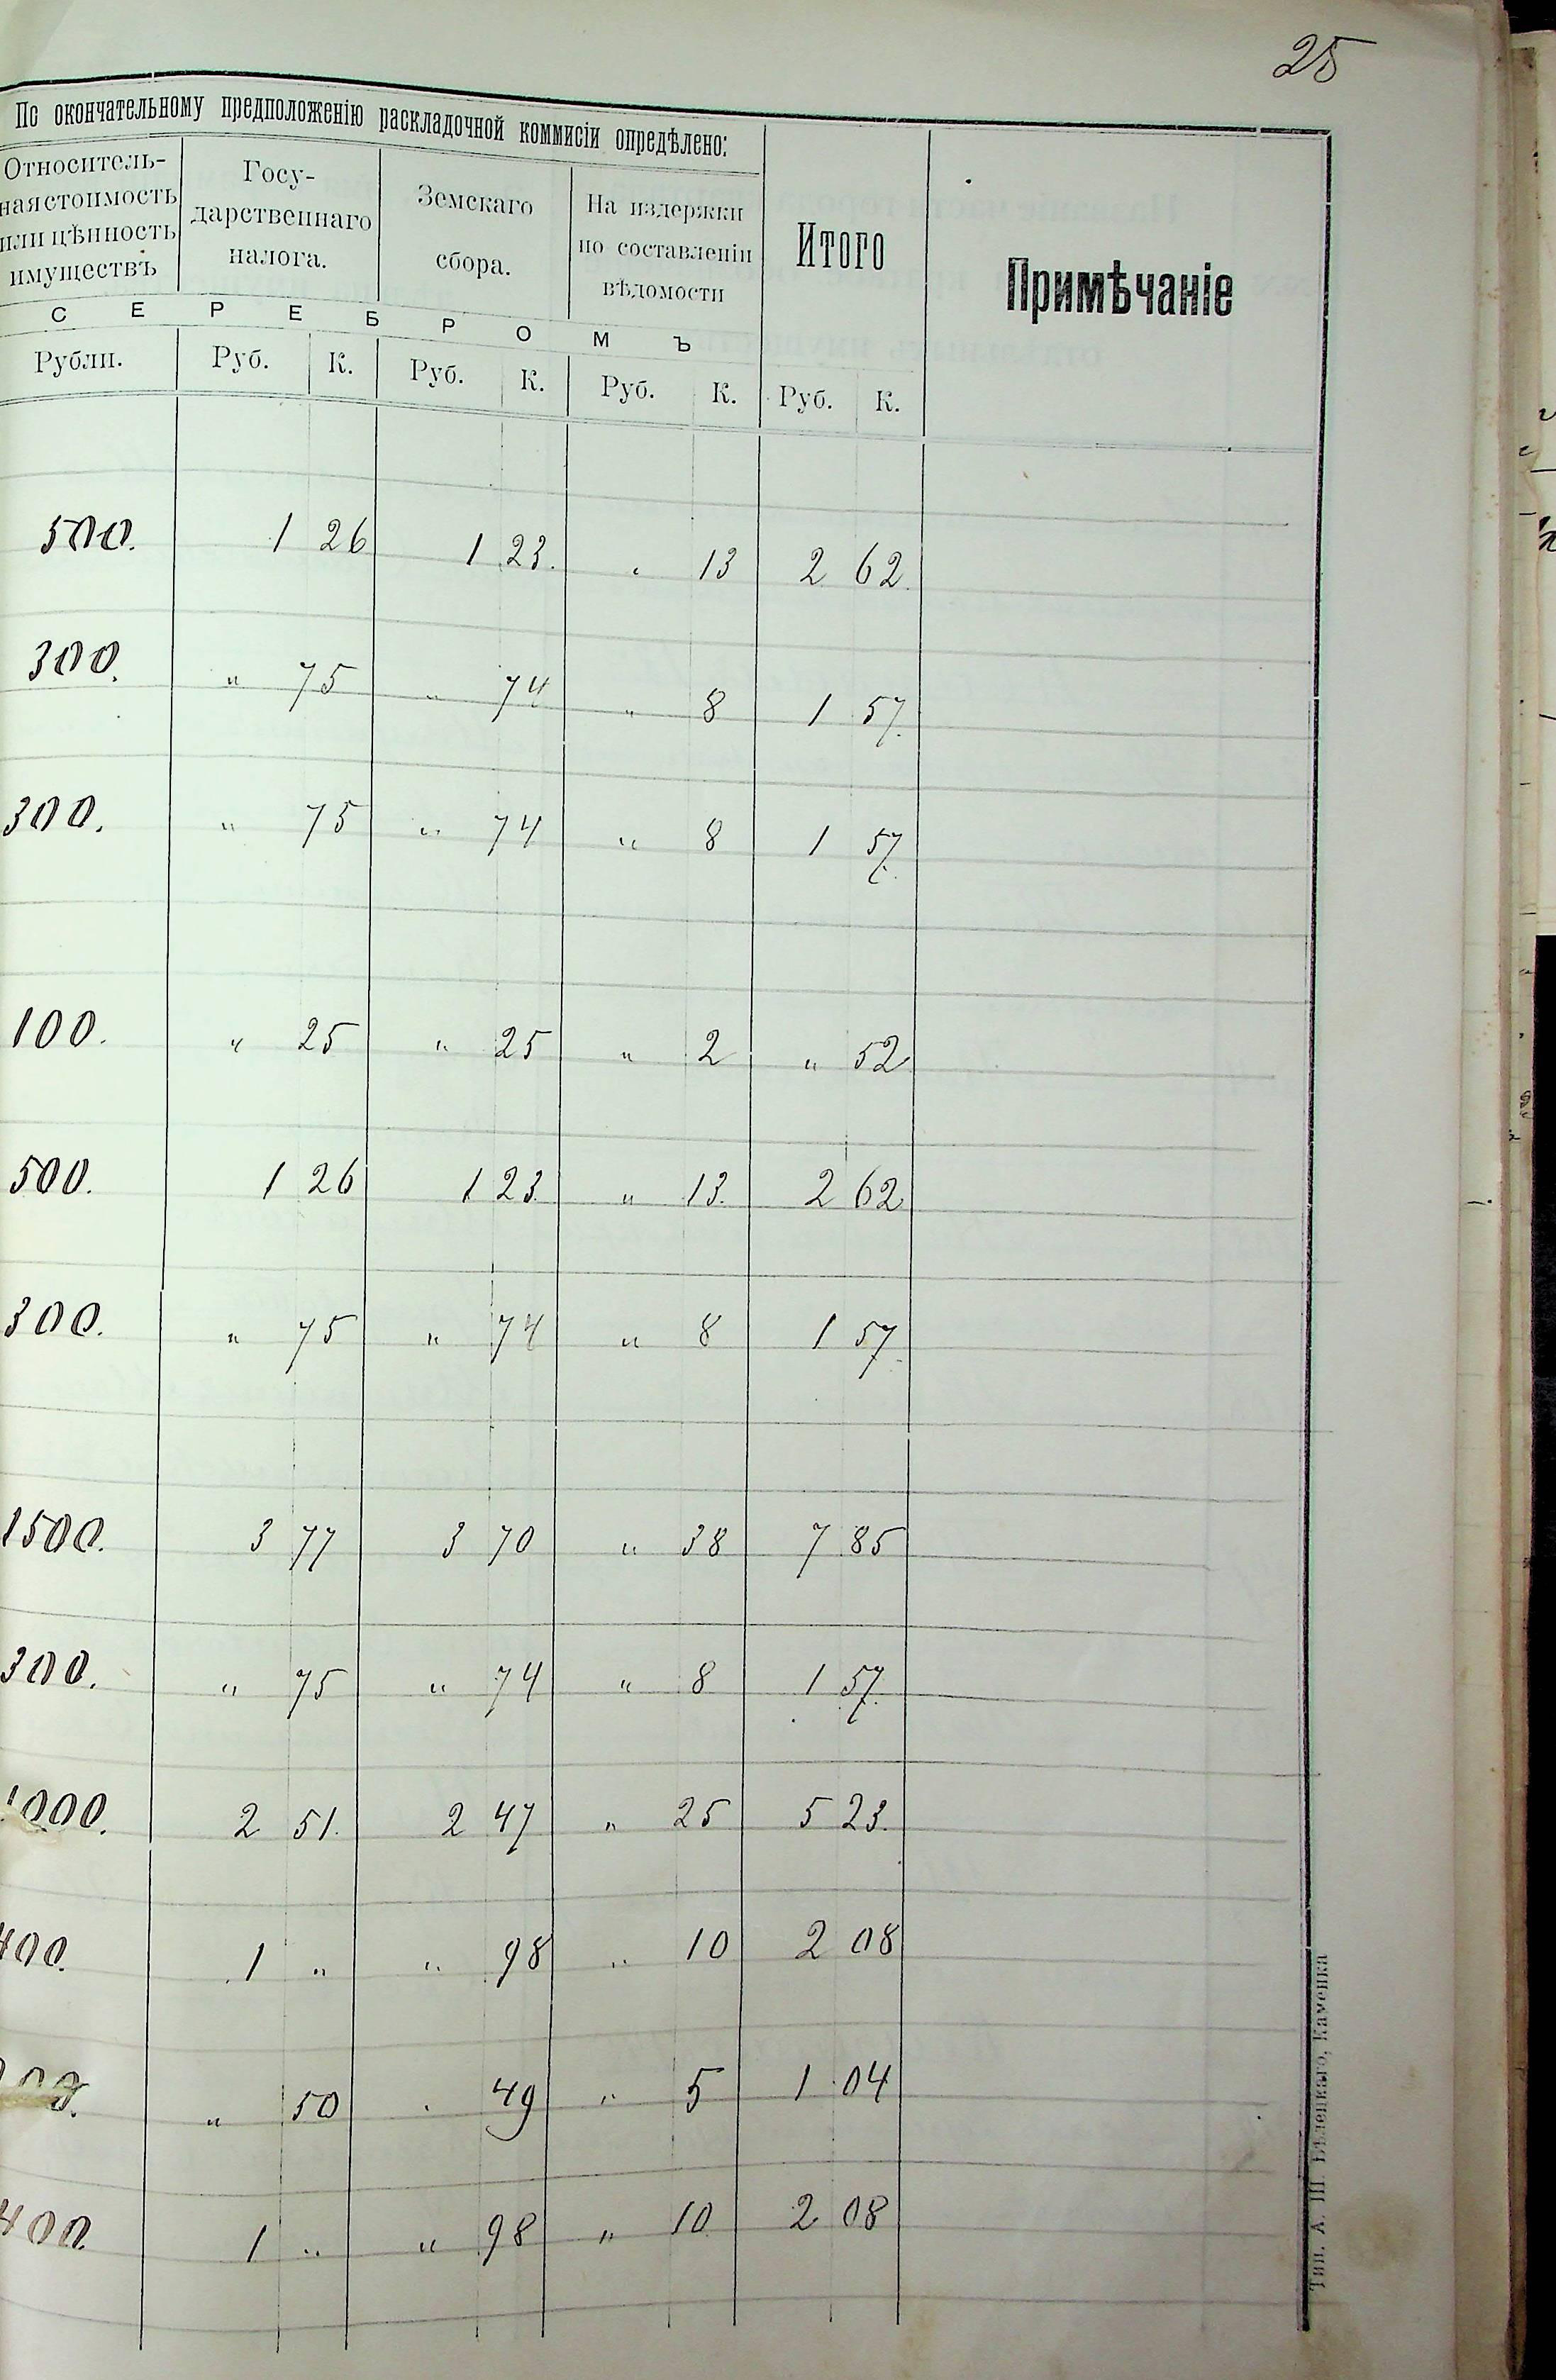 25
По окончательному предположенію раскладочной коммисіи опредѣлено:
Относитель-
ная стоимость
или цѣнность
имуществъ
Госу-
дарственнаго
налога.
Земскаго
сбора.
На издержки
по составленіи
вѣдомости
Итого
Примѣчаніе
С Е Р Е Б Р О М Ъ
Рубли. Руб. К. Руб. К. Руб. К. Руб. К.
500. 1 26 1 23. " 13 2 62.
300. " 75 " 74 " 8 1 57.
300. " 75 " 74 " 8 1 57.
100. " 25 " 25 " 2 " 52
500. 1 26 1 23. " 13. 2 62
300. " 75 " 74 " 8 1 57.
1500. 3 77 3 70 " 38 7 85
300. " 75 " 74 " 8 1 57.
1000. 2 51. 2 47 " 25 5 23.
400. 1 " " 98 " 10 2 08
00. " 50 " 49 " 5 1 04
400. 1 " " 98 " 10 2 08
Тип. А. Ш. Бѣлецкаго, Каменка